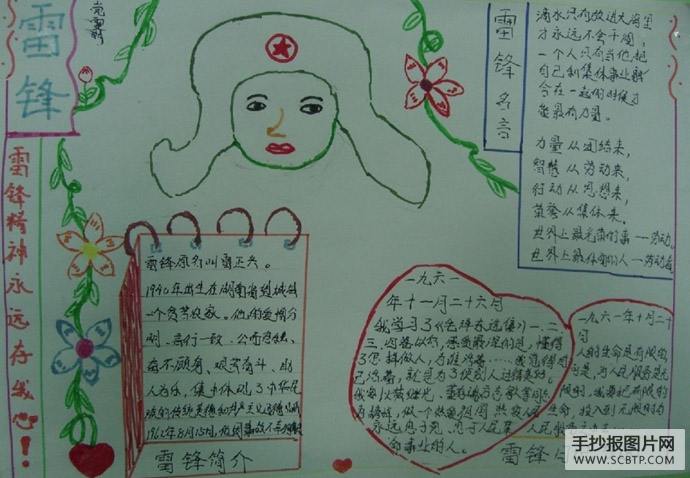 雷锋
雷锋精神永远存我心！
雷锋名言
滴水只有放进大海里
才永远不会干涸，
一个人只有当他把
自己和集体事业融
合在一起的时候才
能最有力量。
力量从团结来，
智慧从劳动来，
行动从思想来，
荣誉从集体来。
世界上最光荣的事——劳动。
世界上最体面的人——劳动者
雷锋原名叫雷正兴。
1940年出生在湖南省望城县
一个贫苦农家。他的爱憎分
明、言行一致、公而忘私、
奋不顾身、艰苦奋斗、助
人为乐，集中体现了中华民
族的传统美德和共产主义道德
1962年8月15日，
雷锋简介
一九六一
年十一月二十六日
我学习了《毛泽东选集》一、二、
三、四卷以后，感受最深的是，懂得
了怎样做人，为谁活着……我觉得自
己活着，就是为了使别人过得美好。
永远忠于党，忠于人民
命事业的人。
一九六一年十月二十
日
人的生命是有限的
为人民服务是无
限的，我要把有限的
生命，投入到无限的为
人民服务之中去
雷锋日
手抄报图片网
WWW.SCBTP.COM